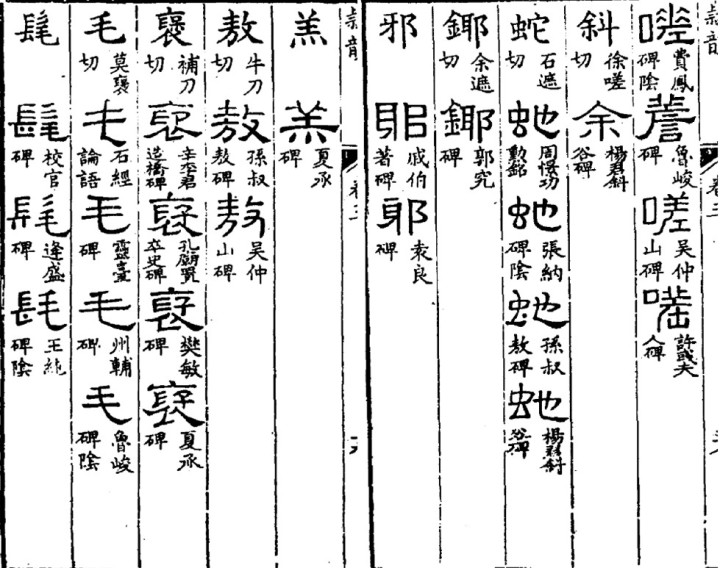 嗟費鳳碑陰䜺魯峻碑嗟吳仲山碑嗟許戫夫人碑
斜徐嗟切余楊君斜谷碑
蛇石遮切虵周憬功勳銘虵張納碑陰虵孫叔敖碑虵楊君斜谷碑
鎁余遮切鎁郭究碑
邪邪戚伯著碑邪袁良碑
羔羔夏承碑
敖牛刀切敖孫叔敖碑敖吳仲山碑
褒補刀切褒辛李君造橋碑褒孔廟置卒史碑褒樊敏碑褒夏承碑
毛莫褒切毛石經論語毛靈臺碑毛州輔碑毛魯峻碑陰
髦髦校官碑髦逢盛碑髦王純碑陰